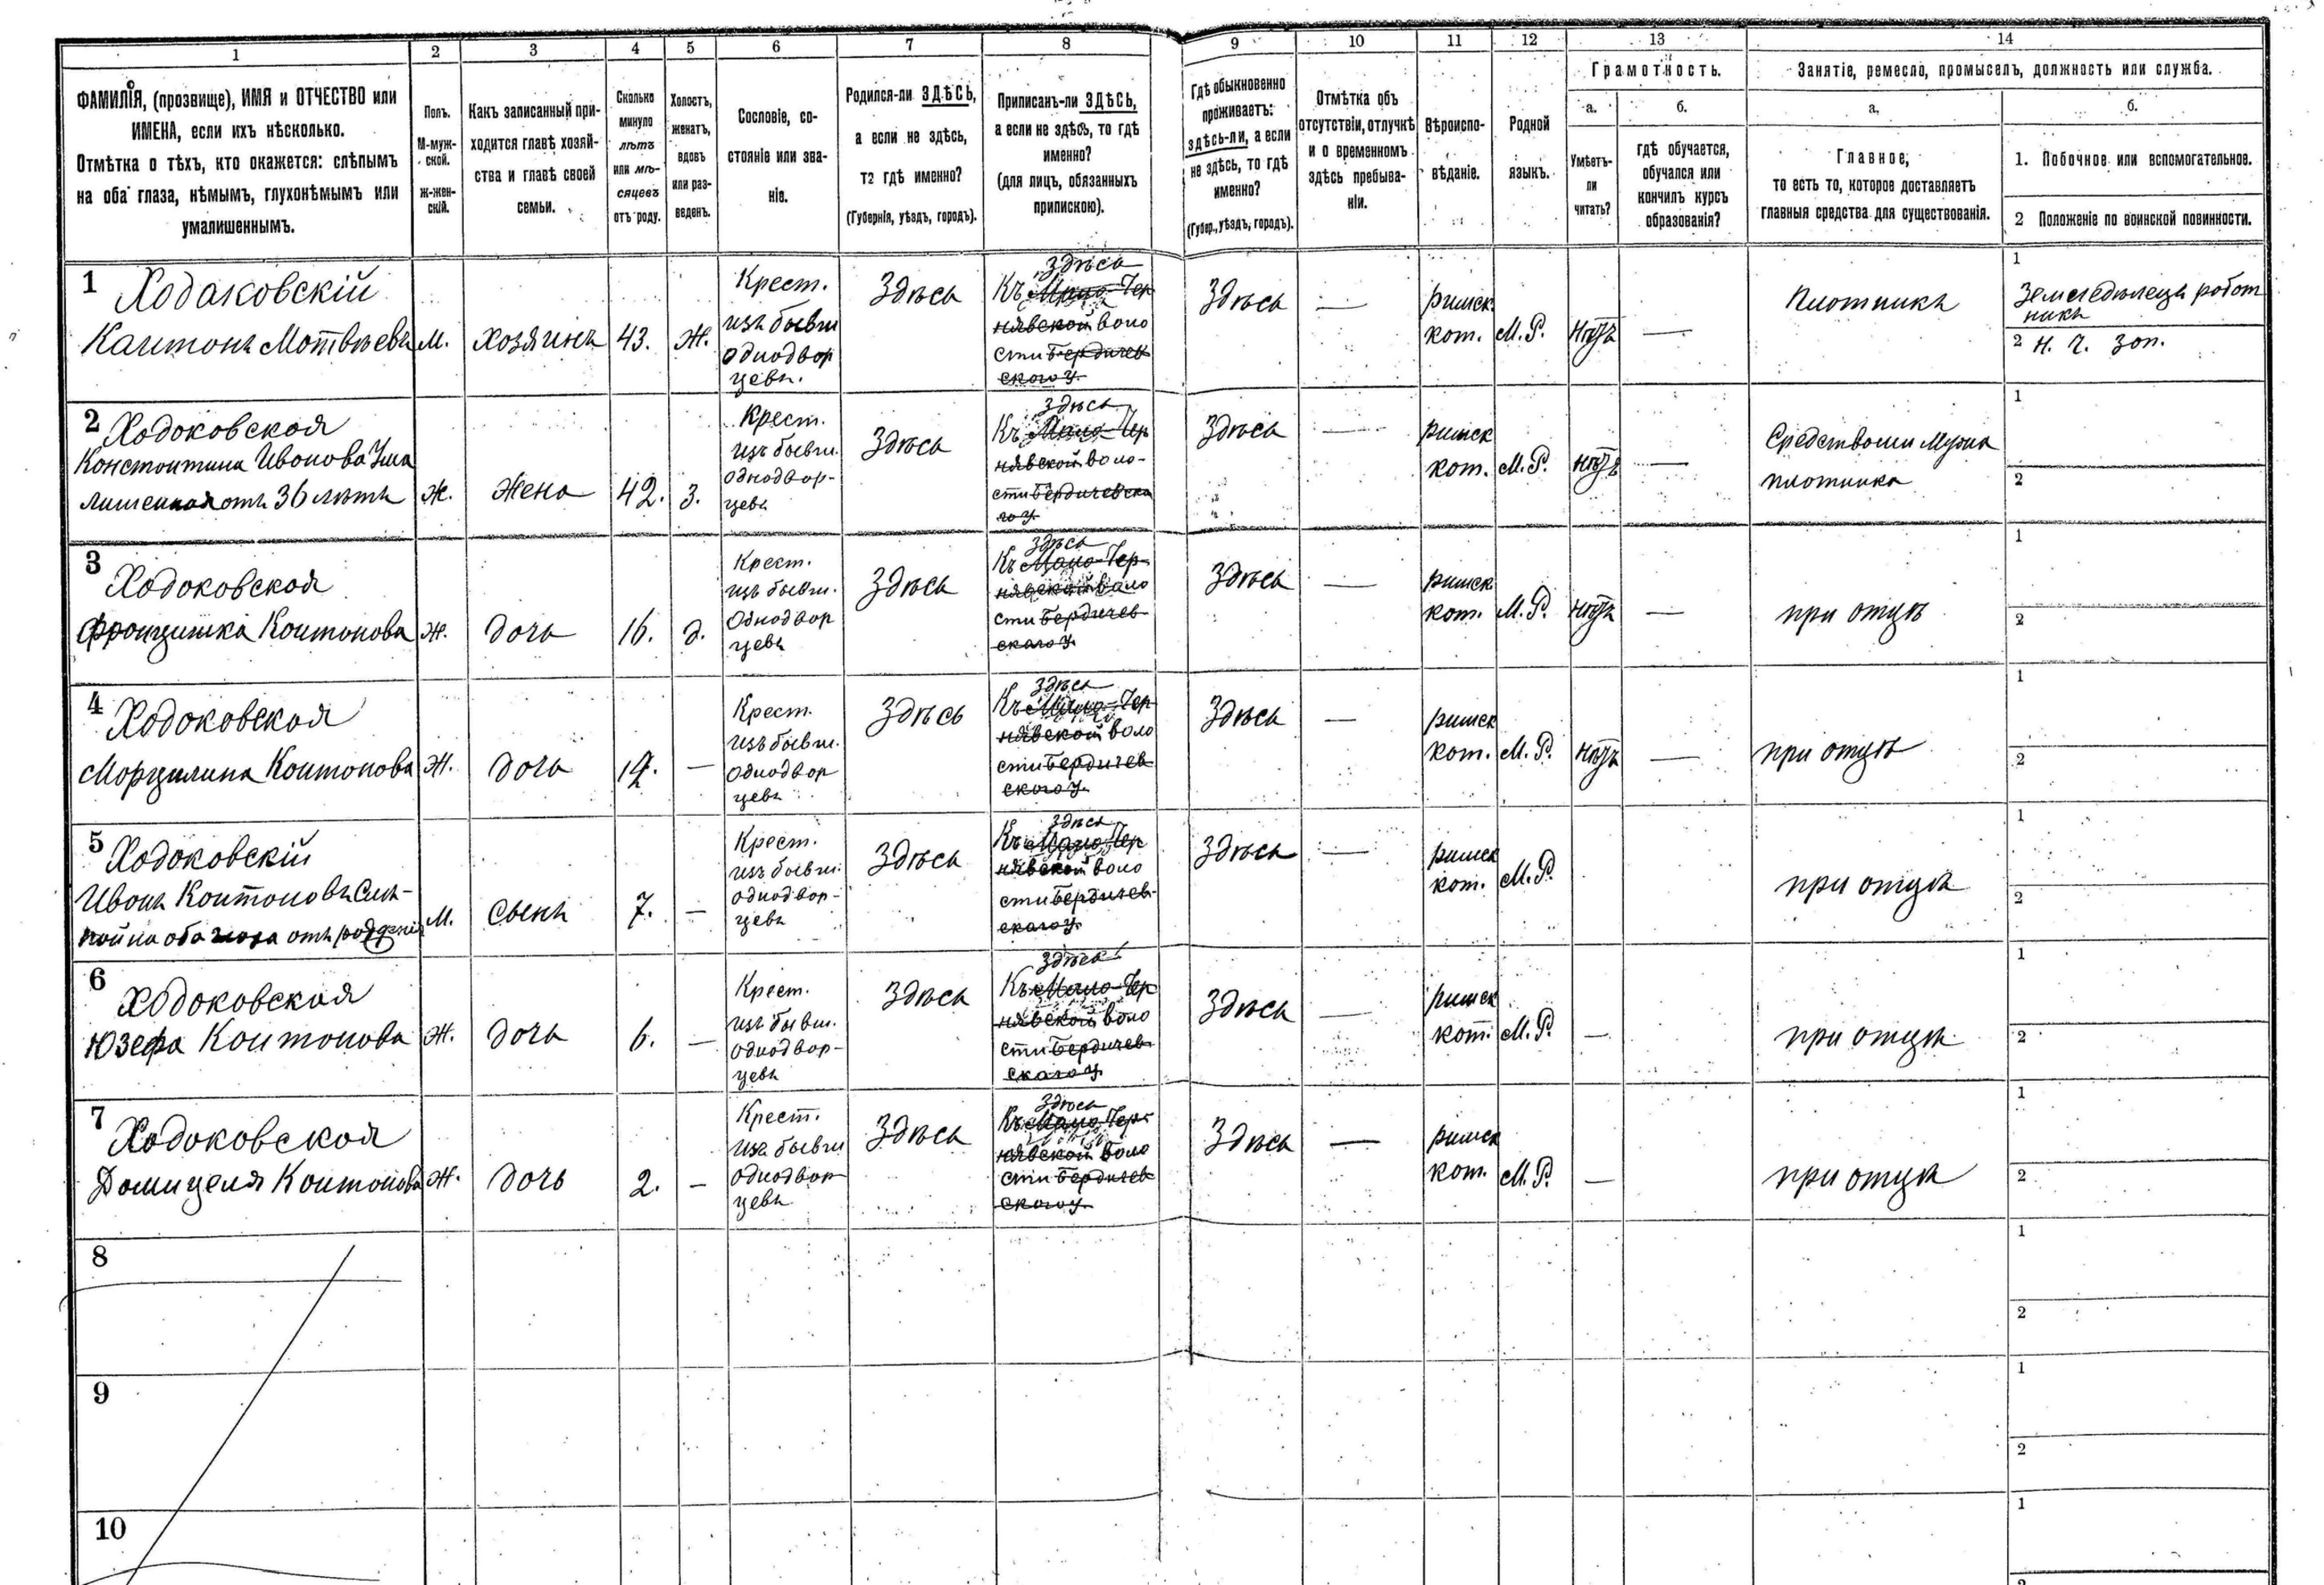 1 2 3 4 5 6 7 8 9 10 11 12 13 14
ФАМИЛІЯ, (прозвище), ИМЯ и ОТЧЕСТВО или
ИМЕНА, если ихъ нѣсколько.
Отмѣтка о тѣхъ, кто окажется: слѣпымъ
на оба глаза, нѣмымъ, глухонѣмымъ или
умалишеннымъ.
Полъ.
М-муж-
ской.
ж-жен-
скій.
Какъ записанный при-
ходится главѣ хозяй-
ства и главѣ своей
семьи.
Сколько
минуло
лѣтъ
или мѣ-
сяцевъ
отъ роду.
Холостъ,
женатъ,
вдовъ
или раз-
веденъ.
Сословіе, со-
стояніе или зва-
ніе.
Родился-ли ЗДѢСЬ,
а если не здѣсь,
то гдѣ именно?
(Губернія, уѣздъ, городъ).
Приписанъ-ли ЗДѢСЬ,
а если не здѣсь, то гдѣ
именно?
(для лицъ, обязанныхъ
припискою).
Гдѣ обыкновенно
проживаетъ:
здѣсь-ли, а если
не здѣсь, то гдѣ
именно?
(Губер., уѣздъ, городъ).
Отмѣтка объ
отсутствіи, отлучкѣ
и о временномъ
здѣсь пребыва-
ніи.
Вѣроиспо-
вѣданіе.
Родной
языкъ.
Грамотность.
а.
Умѣетъ-
ли
читать?
б.
гдѣ обучается,
обучался или
кончилъ курсъ
образованія?
Занятіе, ремесло, промыселъ, должность или служба.
а,
Главное,
то есть то, которое доставляетъ
главныя средства для существованія.
б.
1. Побочное или вспомогательное.
2 Положеніе по воинской повинности.
1 Ходаковскій
Каитонъ Матвѣевъ
М.
хозяинъ
43.
Ж.
Крест.
изъ бывш
однодвор
цевъ.
Здѣсь
Здѣсь
Къ Мало-Чер
нявской воло
сти Бердичев
скаго у.
Здѣсь
—
римск.
кат.
М.Р.
нѣтъ
—
плотникъ
1
Земледѣлецъ работ
никъ
2 н. ч. зап.
2 Ходаковская
Константина Иванова Ума
лишенная отъ 36 лѣтъ
Ж.
жена
42.
З.
Крест.
изъ бывш.
однодвор-
цевъ
Здѣсь
Здѣсь
Къ Мало-Чер
нявской воло-
сти Бердичевска
го у.
Здѣсь
—
римск
кат.
М.Р.
нѣтъ
—
Средствами мужа
плотника
1
2
3 Ходаковская
Францишка Каитонова
Ж.
дочь
16.
д.
Крест.
изъ бывш.
однодвор
цевъ
Здѣсь
Здѣсь
Къ Мало-Чер-
нявской воло
сти Бердичев-
скаго у.
Здѣсь
—
римск
кат.
М.Р.
нѣтъ
—
при отцѣ
1
2
4 Ходаковская
Марцилина Каитонова
Ж.
дочь
—
Крест.
изъ бывш.
однодвор
цевъ
Здѣсь
Здѣсь
Къ Мало-Чер
нявской воло
сти Бердичев
скаго у.
Здѣсь
—
римск
кат.
М.Р.
нѣтъ
—
при отцѣ
1
2
5 Ходаковскій
Иванъ Каитоновъ Слѣ-
пой на оба глаза отъ рожденія
М.
сынъ
7.
—
Крест.
изъ бывш.
однодвор-
цевъ
Здѣсь
Здѣсь
Къ Мало-Чер
нявской воло
сти Бердичев-
скаго у.
Здѣсь
—
римск
кат.
М.Р.
при отцѣ
1
2
6 Ходаковская
Юзефа Каитонова
Ж.
дочь
6.
—
Крест.
изъ бывш.
однодвор-
цевъ
Здѣсь
Здѣсь
Къ Мало-Чер
нявской воло
сти Бердичев
скаго у.
Здѣсь
—
римск
кат.
М.Р.
—
при отцѣ
1
2
7 Ходаковская
Домицеля Каитонова
Ж.
дочь
2.
—
Крест.
изъ бывш
однодвор
цевъ
Здѣсь
Здѣсь
Къ Мало-Чер-
нявской воло
сти Бердичев
скаго у.
Здѣсь
—
римск
кат.
М.Р.
—
при отцѣ
1
2
8
1
2
9
1
2
10
1